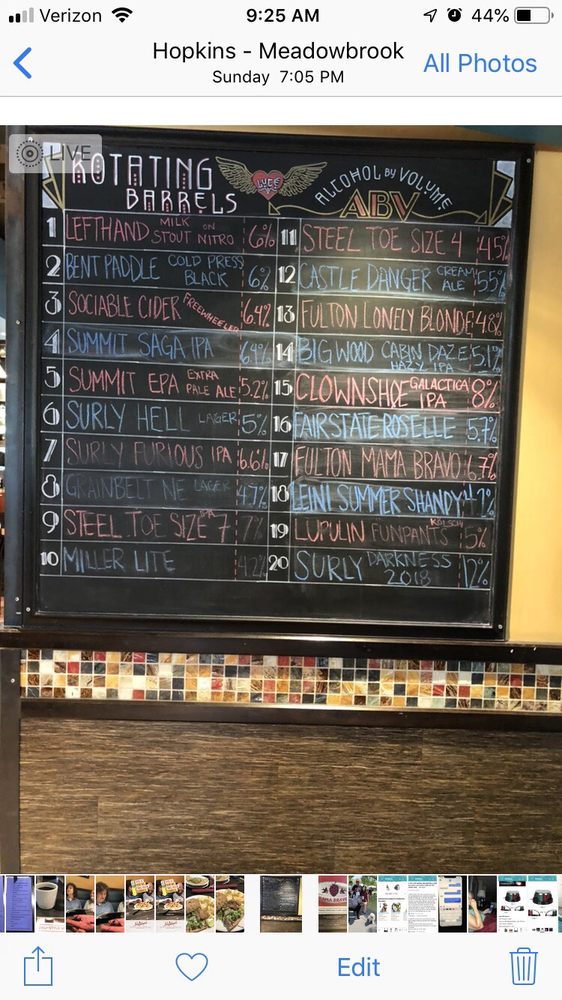 Verizon 9:25 AM 44%
Hopkins - Meadowbrook
Sunday 7:05 PM
All Photos
LIVE
ROTATING BARRELS
LUCE
ALCOHOL BY VOLUME
ABV
1 LEFTHAND MILK STOUT ON NITRO 6%
2 BENT PADDLE COLD PRESS BLACK 6%
3 SOCIABLE CIDER FREEWHEELER 6.4%
4 SUMMIT SAGA IPA 6.4%
5 SUMMIT EPA EXTRA PALE ALE 5.2%
6 SURLY HELL LAGER 5%
7 SURLY FURIOUS IPA 6.6%
8 GRAINBELT NE LAGER 4.7%
9 STEEL TOE SIZE 7 IPA 7%
10 MILLER LITE 4.2%
11 STEEL TOE SIZE 4 4.5%
12 CASTLE DANGER CREAM ALE 5.5%
13 FULTON LONELY BLONDE 4.8%
14 BIG WOOD CABIN DAZE HAZY IPA 5.1%
15 CLOWNSHOE GALACTICA IPA 8%
16 FAIR STATE ROSELLE 5.7%
17 FULTON MAMA BRAVO 6.7%
18 LEINI SUMMER SHANDY
19 LUPULIN FUNPANTS KOLSCH 5%
20 SURLY DARKNESS 2018 12%
Edit